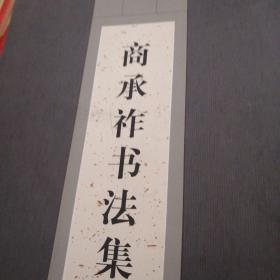 商承祚书法集